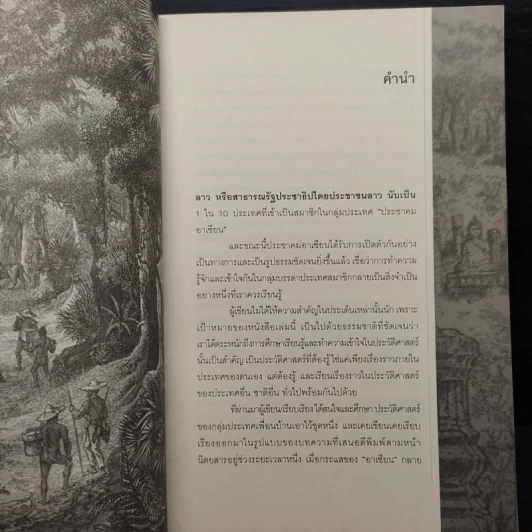 คำนำ
ลาว หรือสาธารณรัฐประชาธิปไตยประชาชนลาว นับเป็น
1 ใน 10 ประเทศที่เข้าเป็นสมาชิกในกลุ่มประเทศ "ประชาคม
อาเซียน"
และขณะนี้ประชาคมอาเซียนได้รับการเปิดตัวกันอย่าง
เป็นทางการและเป็นรูปธรรมชัดเจนยิ่งขึ้นแล้ว เชื่อว่าการทำความ
รู้จักและเข้าใจกันในกลุ่มบรรดาประเทศสมาชิกกลายเป็นสิ่งจำเป็น
อย่างหนึ่งที่เราควรเรียนรู้
ผู้เขียนไม่ได้ให้ความสำคัญในประเด็นเหล่านั้นนัก เพราะ
เป้าหมายของหนังสือเล่มนี้ เป็นไปด้วยธรรมชาติที่ชัดเจนว่า
เราได้ตระหนักถึงการศึกษาเรียนรู้และทำความเข้าใจในประวัติศาสตร์
นั้นเป็นสำคัญ เป็นประวัติศาสตร์ที่ต้องรู้ ใช่แค่เพียงเรื่องราวภายใน
ประเทศของตนเอง แต่ต้องรู้ และเรียนเรื่องราวในประวัติศาสตร์
ของประเทศอื่น ชาติอื่น ทั่วไปพร้อมกันไปด้วย
ที่ผ่านมาผู้เขียน/เรียบเรียง ได้สนใจและศึกษา ประวัติศาสตร์
ของกลุ่มประเทศเพื่อนบ้านเอาไว้ชุดหนึ่ง และเคยเขียนเคยเรียบ
เรียงออกมาในรูปแบบของบทความที่เสนอตีพิมพ์ตามหน้า
นิตยสารอยู่ช่วงระยะเวลาหนึ่ง เมื่อกระแสของ "อาเซียน" กลาย